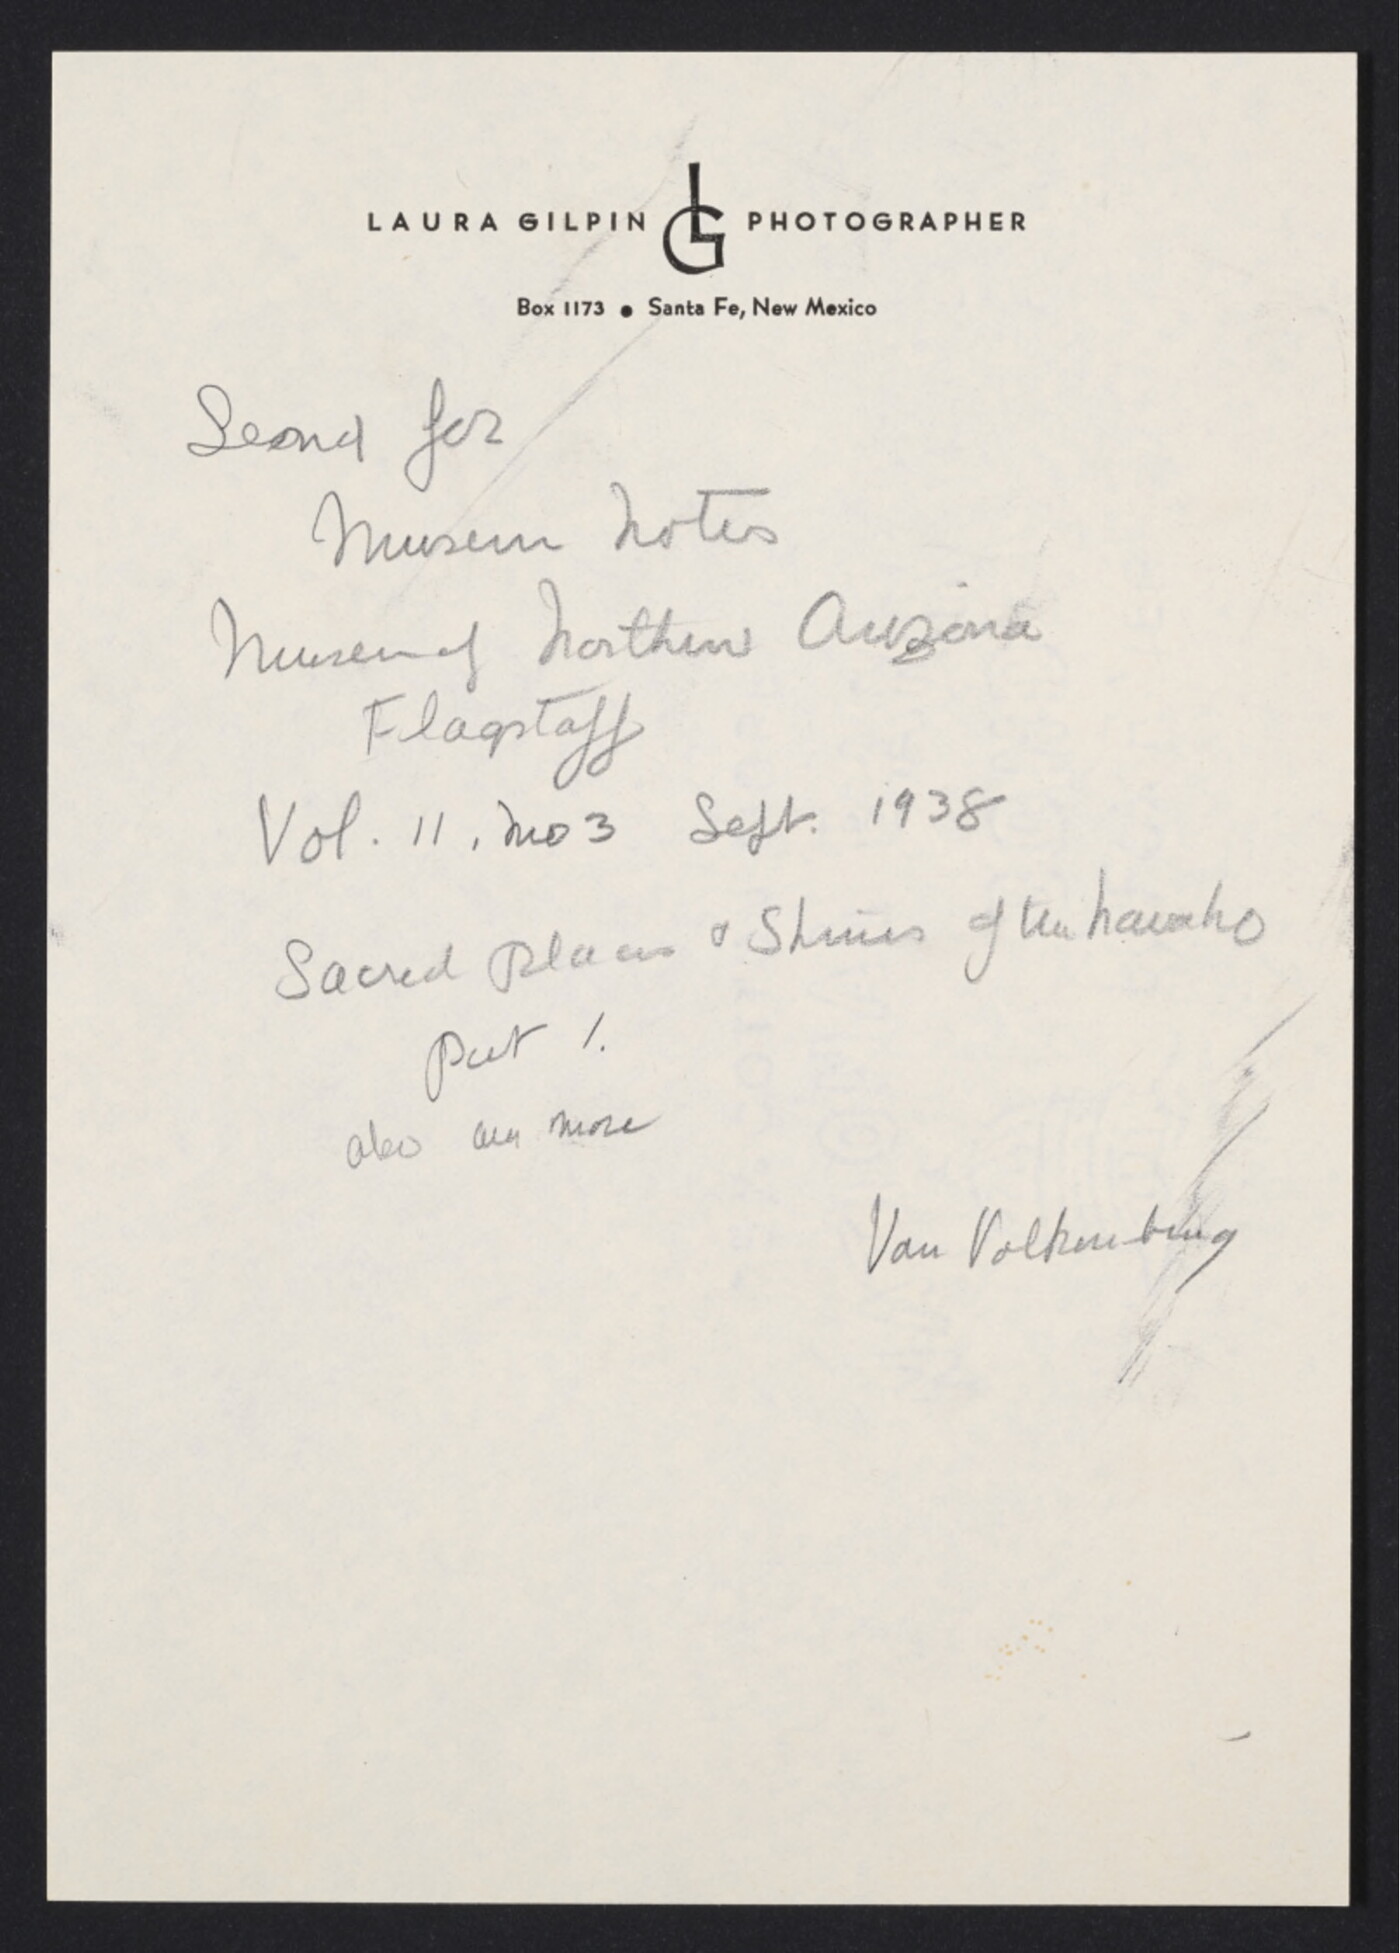 LAURA GILPIN LG PHOTOGRAPHER
Box 1173 • Santa Fe, New Mexico
Seond for
Museum Notes
Museum of Northern Arizona
Flagstaff
Vol. 11, no 3 Sept. 1938
Sacred Places & Shrines of the Navaho
Part 1.
also any more
Van Valkenburg